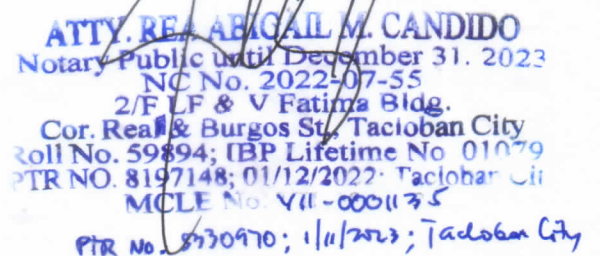 ATTY. REA ABIGAIL M. CANDIDO
Notary Public until December 31. 2023
NC No. 2022-07-55
2/F LF & V Fatima Bldg.
Cor. Real & Burgos St., Tacloban City
Roll No. 59894; IBP Lifetime No 01079
PTR NO. 8197148; 01/12/2022; Tacloban Cit
MCLE No. VII-0001135
PTR No. 8330970; 1/11/2023; Tacloban City